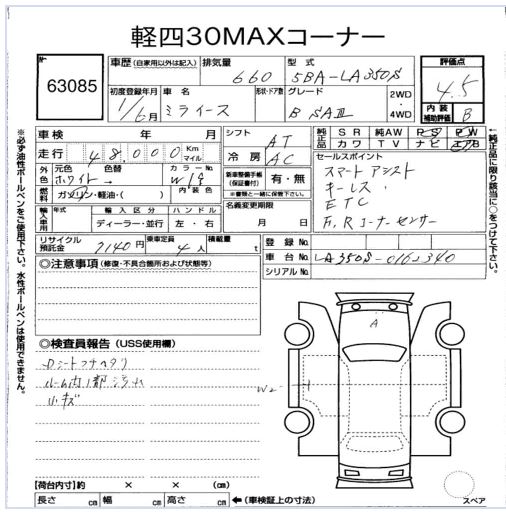 軽四30MAXコーナー
No
63085
車歴 (自家用以外は記入)
排気量
660
型式
5BA-LA350S
評価点
4.5
初度登録年月
1/6月
車名
ミライース
形状・ドア数
グレード
B SAⅢ
2WD
・
4WD
内装
補助評価
B
車検 年 月
シフト
AT
純正品
SR 純AW PS PW
カワ TV ナビ エアB
走行
48,000
Km
マイル
冷房
AC
セールスポイント
スマートアシスト
キーレス
ETC
F,Rコーナーセンサー
外色
元色
ホワイト
色替
カラーNo.
W19
新車整備手帳
(保証書付)
有・無
※書類と一緒に保管下さい。
燃料
ガソリン・軽油・( )
内装色
名義変更期限
月 日
輸入車用
年式
輸入区分
ディーラー・並行
ハンドル
左・右
リサイクル
預託金
7140円
乗車定員
4人
積載量
t
登録No.
車台No.
LA350S-0162340
シリアルNo.
◎注意事項 (修復・不具合箇所および状態等)
A
◎検査員報告 (USS使用欄)
Dシートフチヘタリ
ルーム内1部汚れ
小キズ
W2
【荷台内寸】約 × × (cm)
長さ cm 幅 cm 高さ cm ←(車検証上の寸法)
スペア
※必ず油性ボールペンをご使用下さい。水性ボールペンは使用できません。
←純正品に限り該当に○をつけて下さい。